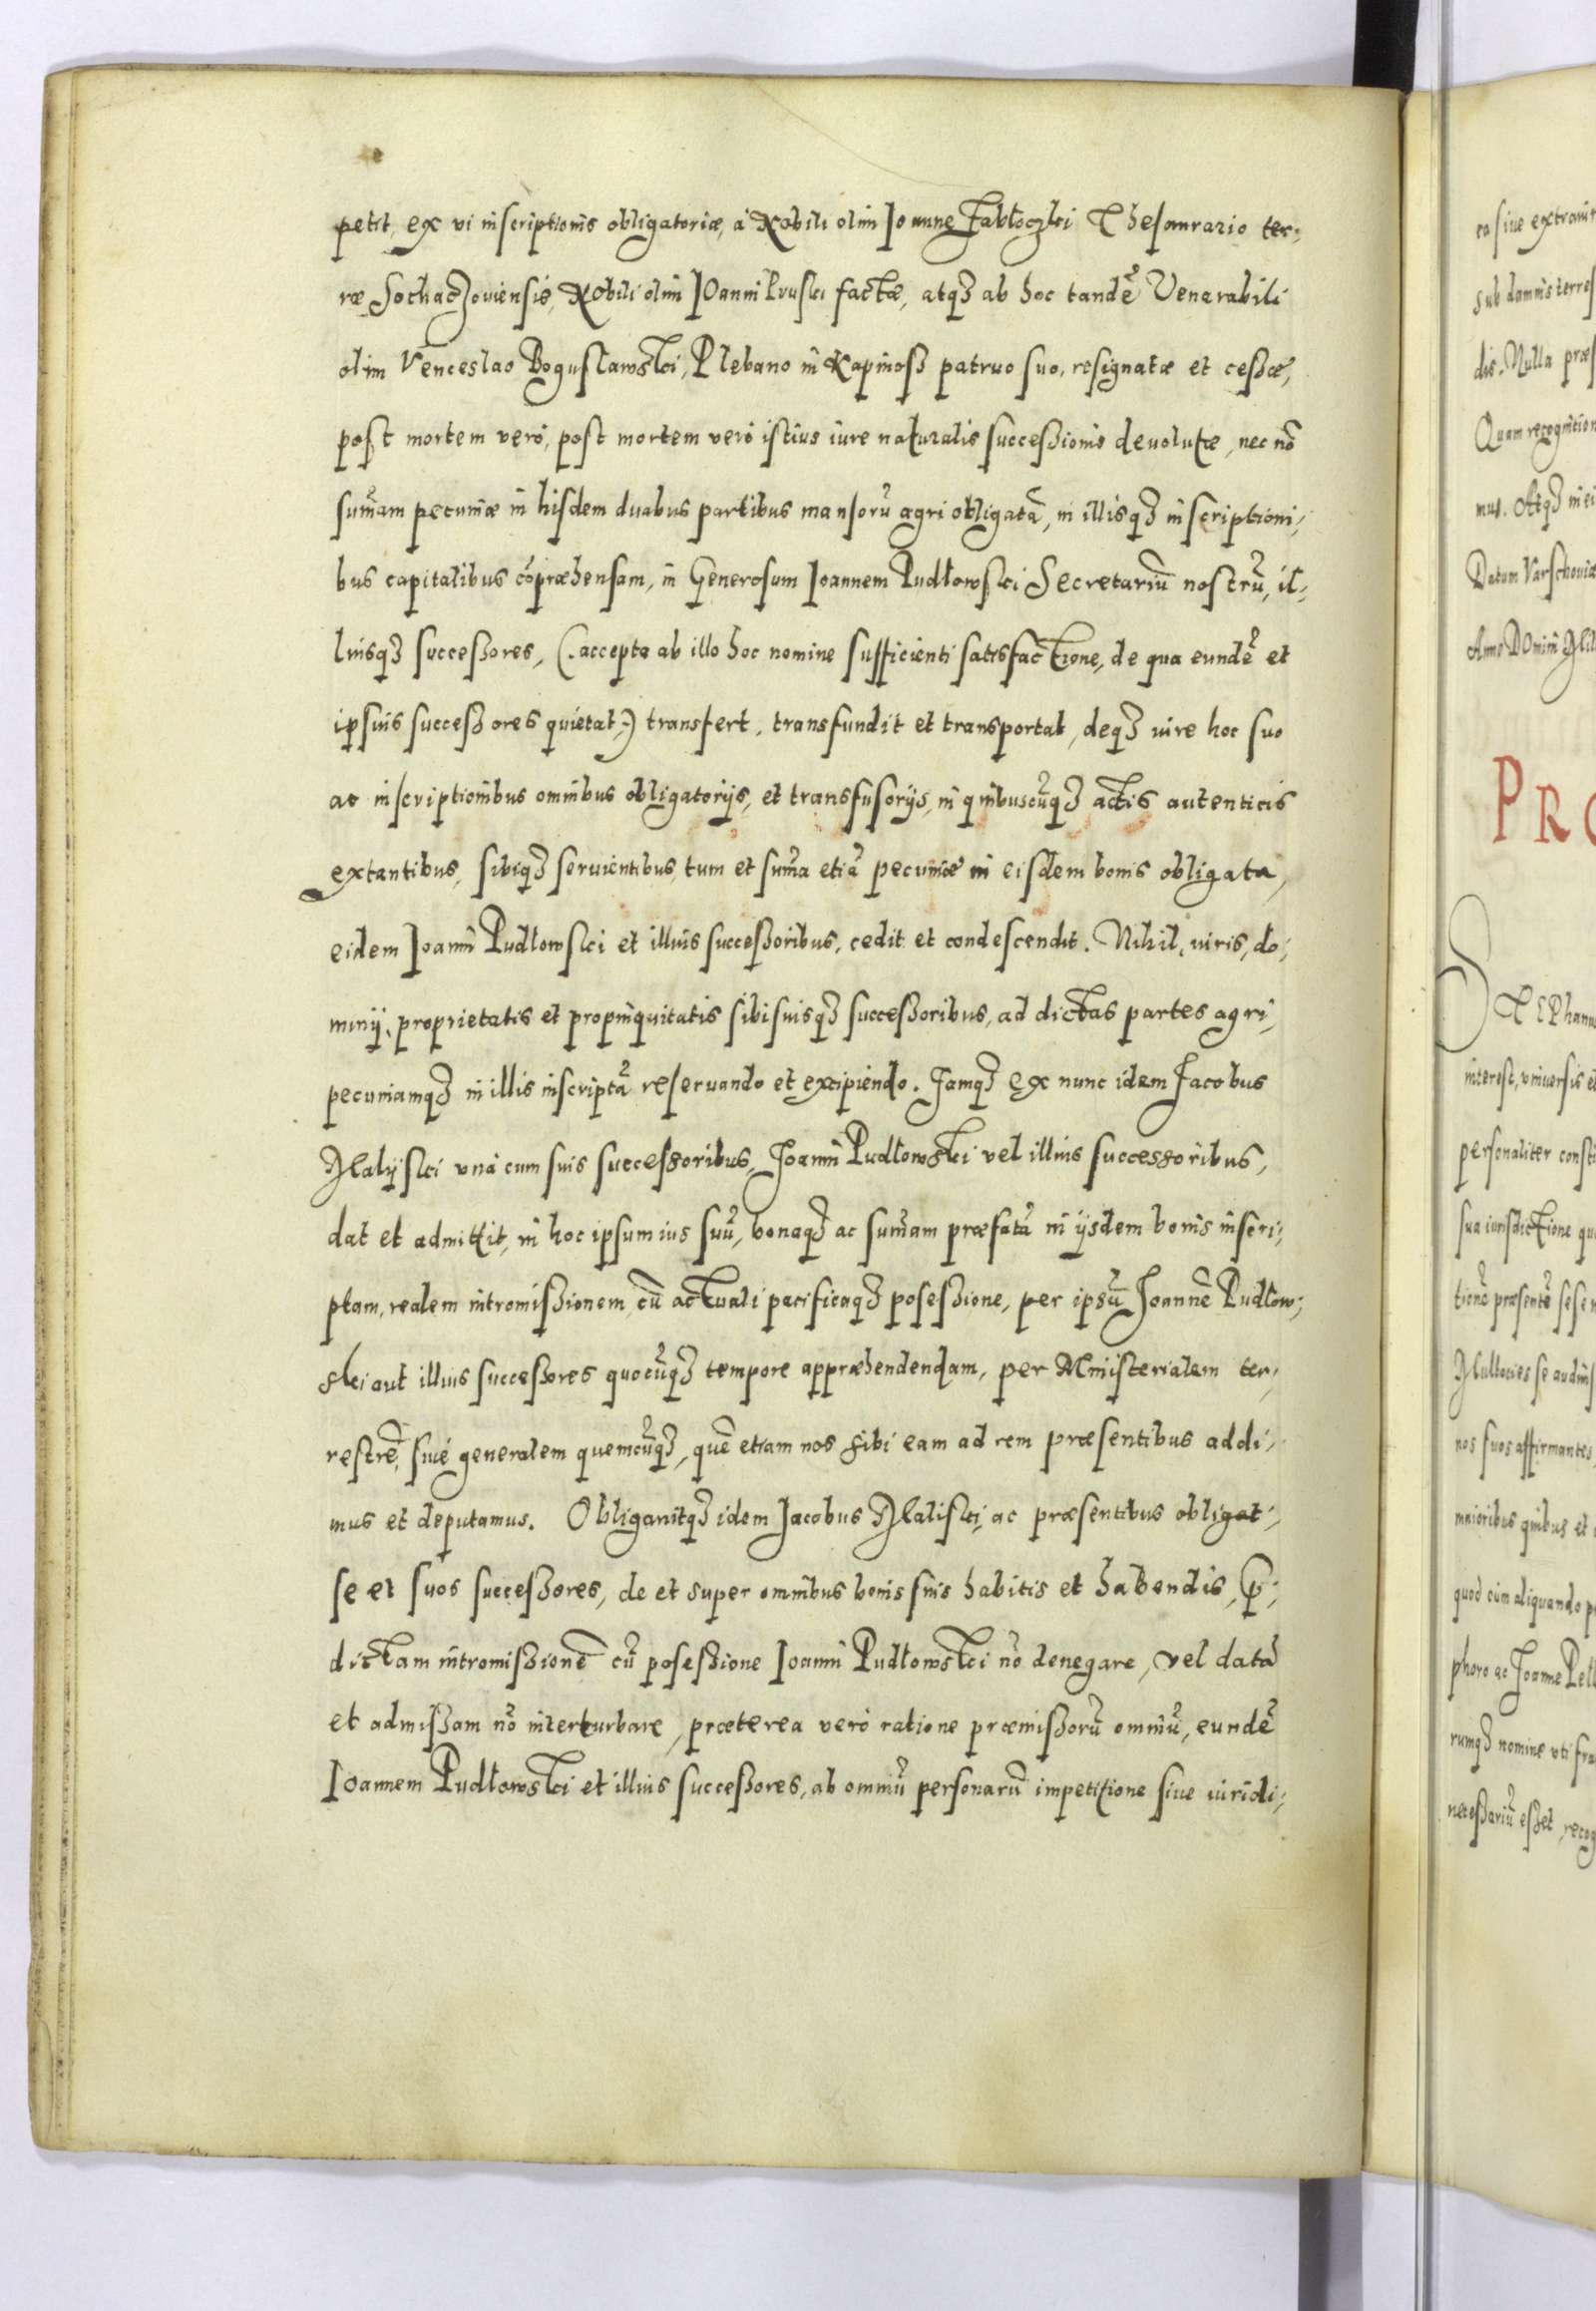 petit, ex vi inscriptionis obligatoriæ, à Nobili olim Ioanne Jabłoczki Thesaurario ter,
ræ Sochaczoviensis, Nobili olim Ioanni Pruski factæ, atqȝ ab hoc tandẽ Venerabili
olim Venceslao Bogusławski, Plebano in Kapinoß patruo suo, resignatæ et ceßæ,
post mortem verò, post mortem verò istius iure naturalis succeßionis devolutæ, nec nõ
sum̃am pecuniæ in hisdem duabus partibus mansorũ agri obligatã, in illisqȝ inscriptioni,
bus capitalibus cõpræhensam, in Generosum Ioannem Pudłowski Secretariũ nostrũ, il,
liusqȝ succeßores, (accepta ab illo hoc nomine sufficienti satisfactione, de qua eundẽ et
ipsius succeßores quietat,) transfert, transfundit et transportat, deqȝ iure hoc suo
ac inscriptionibus omnibus obligatorijs, et transfusorijs, in quibuscũqȝ actis autenticis
extantibus, sibiqȝ seruientibus, tum et sum̃a etiã pecuniæ in eisdem bonis obligata,
eidem Ioanni Pudłowski et illius succeßoribus, cedit et condescendit. Nihil, iuris, do,
minij, proprietatis et propinquitatis sibi suisqȝ succeßoribus, ad dictas partes agri,
pecuniamqȝ in illis inscriptã reseruando et excipiendo. Jamqȝ ex nunc idem Jacobus
Malijski unà cum suis successoribus, Joanni Pudłowski vel illius successoribus,
dat et admittit, in hoc ipsum ius suũ, bonaqȝ ac sum̃am præfatã in ijsdem bonis inscri,
ptam, realem intromißionem, cũ actuali pacificaqȝ poseßione, per ipsũ Joannẽ Pudłow,
ski aut illius succeßores quocũqȝ tempore appræhendendam, per Ministerialem ter,
restrẽ, siué generalem quemcũqȝ, quẽ etiam nos sibi eam ad rem præsentibus addi,
mus et deputamus. Obligauitqȝ idem Jacobus Maliski, ac præsentibus obligat,
se et suos succeßores, de et super omnibus bonis suis habitis et habendis, p̱,
dictam intromißionẽ cũ poseßione Ioanni Pudłowski nõ denegare, vel datã
et admißam nõ interturbare, præterea verò ratione præmißorũ omniũ, eundẽ
Ioannem Pudłowski et illius succeßores, ab omniũ personarũ impetitione siue iuridi,
ea siue extraiu
sub damnis terres
dis. Nulla præs
Quam recognition
mus. Atqȝ in ei
Datum Varschouiæ
Anno DOmini Mill
PRO
STEPhanus
interest, vniuersis et
personaliter consti
sua iurisdictione qu
tionẽ præsentẽ sese
nos suos affirmantes,
maioribus quibus et
quod cùm aliquando p
phoro ac Joanne Pell
rumqȝ nomine vti fra
neceßariũ eßet, recog